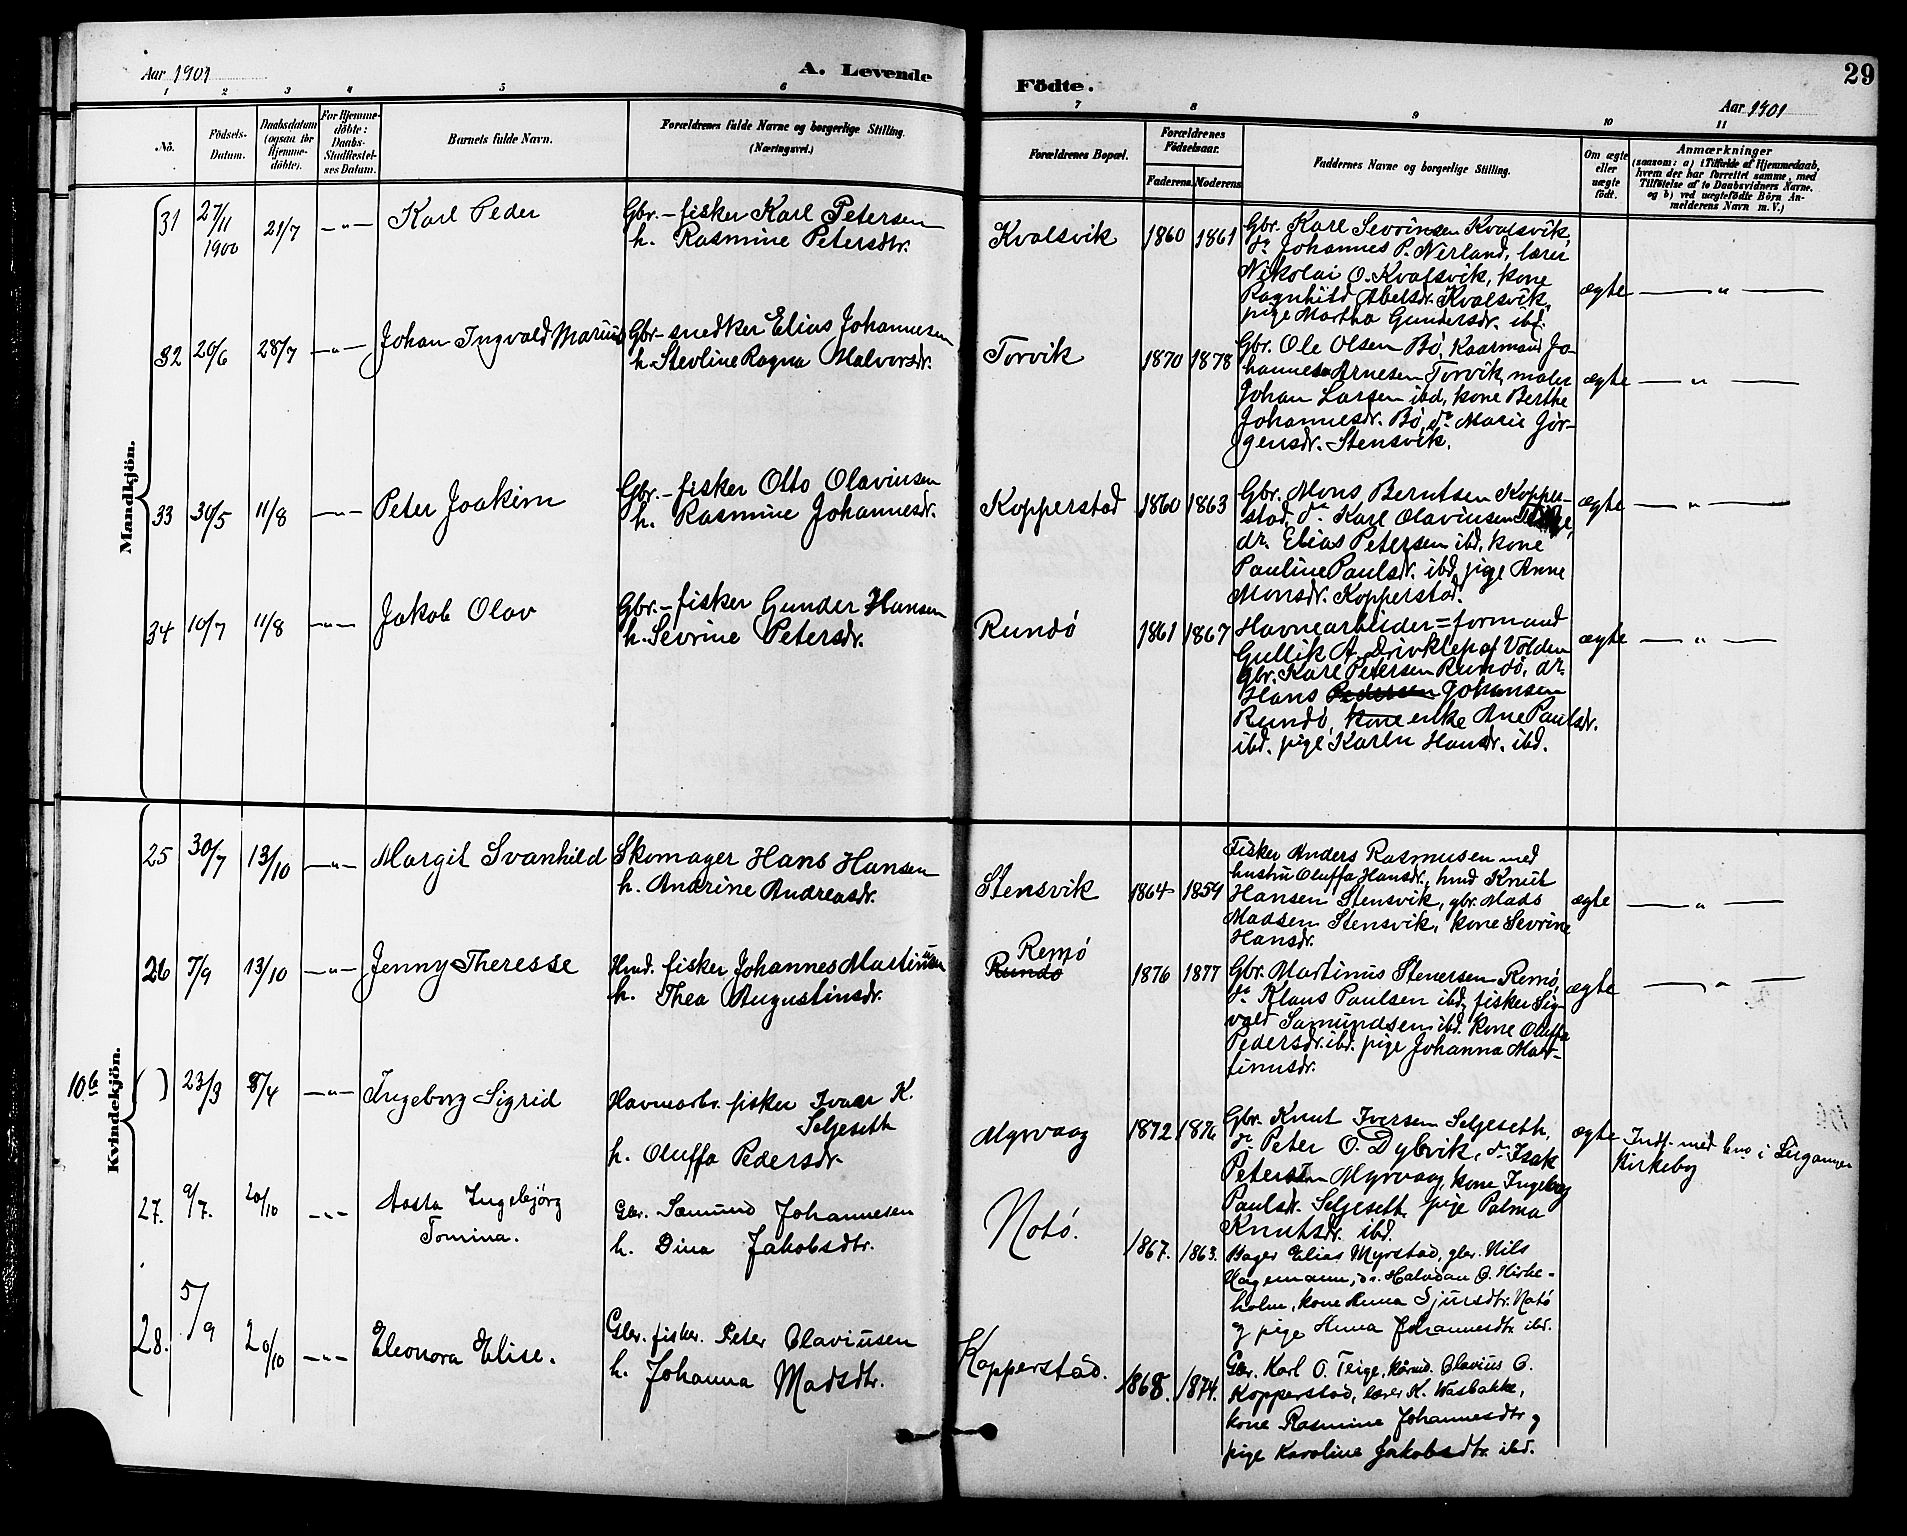 Aar 1901
A. Levende
Födte.
29
Aar 1901
1 2 3 4 5 6 7 8 9 10 11
No.
Födsels-
Datum.
Daabsdatum
(ogsaa for
Hjemme-
döbte).
For Hjemme-
döbte:
Daabs-
Stadfæstel-
ses Datum.
Barnets fulde Navn.
Forældrenes fulde Navne og borgerlige Stilling.
(Næringsvei.)
Forældrenes Bopæl.
Forældrenes
Födselsaar.
Faderens. Moderens.
Faddernes Navne og borgerlige Stilling.
Om ægte
eller
uægte
født.
Anmærkninger
(saasom: a) i Tilfælde af Hjemmedaab,
hvem der har forrettet samme, med
Tilföielse af to Daabsvidners Navne.
og b) ved uægtefödte Börn An-
melderens Navn m. V.)
Mandkjön.
31 27/11 1900 21/7 -"- Karl Peder
Gbr.-fisker Karl Petersen
h. Rasmine Petersdtr.
Kvalsvik 1860 1861
Gbr. Karl Sevrinsen Kvalsvik,
do Johannes P. Nerland, lærer
Nikolai O. Kvalsvik, kone
Ragnhild Abelsdr. Kvalsvik,
pige Martha Gundersdr. ibd.
ægte — " —
32 20/6 28/7 -"- Johan Ingvald Marius
Gbr-snedker Elias Johannesen
h. Stevline Ragna Malvorsdr.
Torvik 1870 1878
Gbr. Ole Olsen Bø, Kaarmand Jo-
hannes Arnesen Torvik, maler
Johan Larsen ibd, kone Berthe
Johannesdr. Bø, do Marie Jør-
gensdr. Stensvik.
ægte — " —
33 30/5 11/8 -"- Peter Joakim
Gbr.-fisker Otto Olavinsen
h. Rasmine Johannesdr.
Kopperstad 1860 1863
Gbr. Mons Berntsen Kopper-
stad, do Karl Olavinsen
dr. Elias Petersen ibd, kone
Pauline Paulsdr. ibd, pige Anne
Monsdr. Kopperstad.
ægte — " —
34 10/7 11/8 -"- Jakob Olav
Gbr.-fisker Gunder Hansen
h. Sevrine Petersdr.
Rundø 1861 1867
Havnearbeider=formand
Gullik A. Drivklep af Volden
Gbr. Karl Petersen Rundø, dr.
Hans Pedersen Johansen
Rundø, kone enke Ane Paulsdr.
ibd. pige Karen Hansdr. ibd.
ægte — " —
Kvindekjön.
25 30/7 13/10 -"- Margit Svanhild
Skomager Hans Hansen
h. Andrine Andreasdr.
Stensvik 1864 1859
Fisker Anders Rasmusen med
hustru Oluffa Hansdr., hmd Knut
Hansen Stensvik, gbr. Mads
Madsen Stensvik, kone Sevrine
Hansdr.
ægte — " —
26 7/9 13/10 -"- Jenny Theresse
Hmd. fisker Johannes Martinusen
h. Thea Augustinsdr.
Remø
Rundø
1876 1877
Gbr. Martinus Stenersen Remø,
do Klaus Paulsen ibd, fisker Sig-
vald Samundsen ibd. kone Oluffa
Pedersdr. ibd. pige Johanna Mar-
tinusdr.
ægte — " —
10.b ( ) 23/3 8/4 -"- Ingeborg Sigrid
Havnearb. fisker Ivaar K.
Seljeseth
h. Oluffa Pedersdr.
Myrvaag 1872 1876
Gbr. Knut Iversen Seljeseth,
do Peter O. Dybvik, do Isak
Petersen Myrvaag, kone Ingeborg
Paulsdr. Seljeseth pige Palma
Knutsdr. ibd.
ægte Indf. med
Kirkebog
27. 9/7. 20/10 -"- Aasta Ingebjörg
Tomina.
Gbr. Sæmund Johannesen
h. Dina Jakobsdtr.
Notö. 1867. 1863.
Bager Elias Myrstad, gbr. Nils
Hagemann, do. Halvdan O. Kirke-
holm, kone Anna Sjursdtr. Notö
og pige Anna Johannesdtr ibd.
28. 5/9 20/10 -"- Eleonora Elise.
Gbr. fisker. Peter Olaviusen
h. Johanna Madsdtr.
Kopperstad. 1868. 1874.
Gbr. Karl O. Teige, kårmd. Olavius O.
Kopperstad, lærer K. Vasbakke,
kone Rasmine Johannesdtr og
pige Karoline Jakobsdtr. ibd.